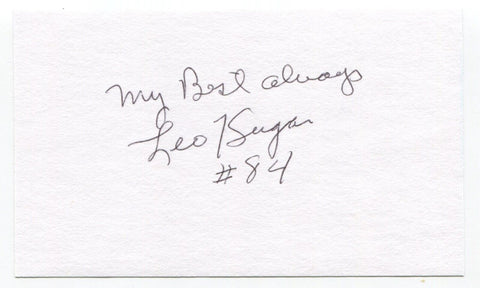 My Best always
Leo Sugar
#84